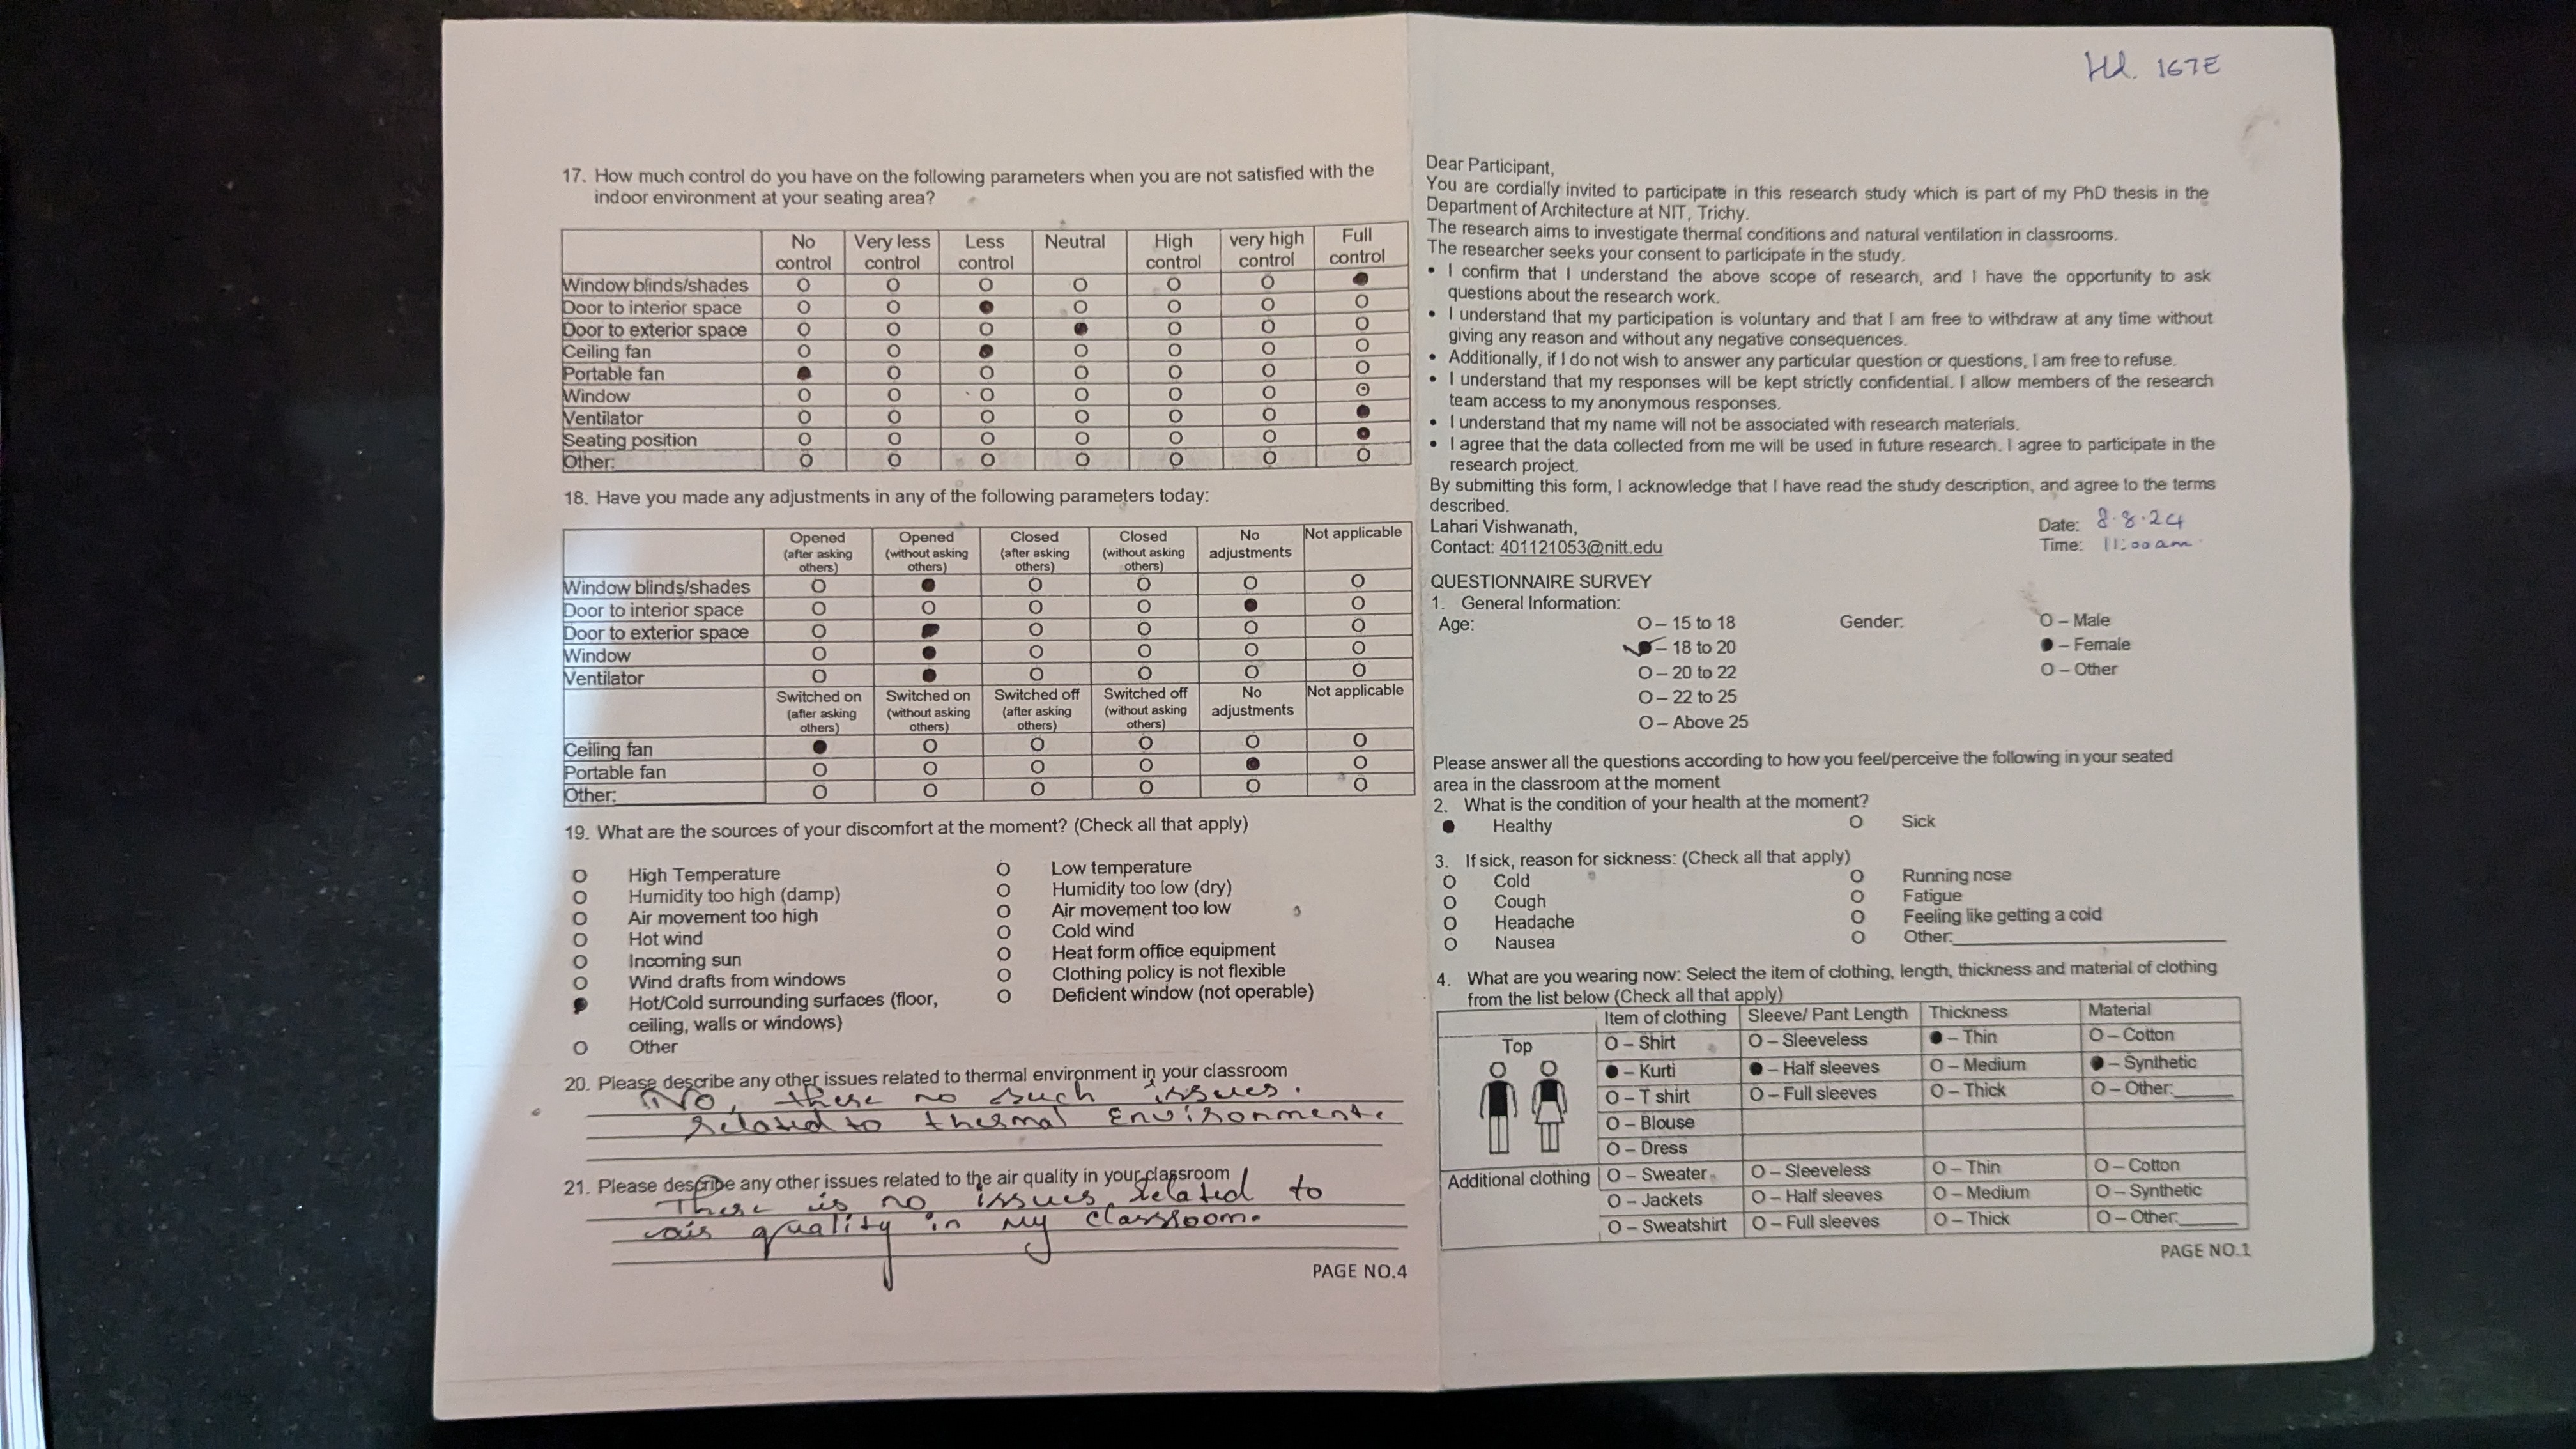 17. How much control do you have on the following parameters when you are not satisfied with the
indoor environment at your seating area?
No control Very less control Less control Neutral High control very high control Full control
Window blinds/shades O O O O O O ●
Door to interior space O O ● O O O O
Door to exterior space O O O ● O O O
Ceiling fan O O ● O O O O
Portable fan ● O O O O O O
Window O O O O O O ⊙
Ventilator O O O O O O ●
Seating position O O O O O O ●
Other: O O O O O O O
18. Have you made any adjustments in any of the following parameters today:
Opened (after asking others) Opened (without asking others) Closed (after asking others) Closed (without asking others) No adjustments Not applicable
Window blinds/shades O ● O O O O
Door to interior space O O O O ● O
Door to exterior space O ● O O O O
Window O ● O O O O
Ventilator O ● O O O O
Switched on (after asking others) Switched on (without asking others) Switched off (after asking others) Switched off (without asking others) No adjustments Not applicable
Ceiling fan ● O O O O O
Portable fan O O O O ● O
Other: O O O O O O
19. What are the sources of your discomfort at the moment? (Check all that apply)
O High Temperature O Low temperature
O Humidity too high (damp) O Humidity too low (dry)
O Air movement too high O Air movement too low
O Hot wind O Cold wind
O Incoming sun O Heat form office equipment
O Wind drafts from windows O Clothing policy is not flexible
● Hot/Cold surrounding surfaces (floor, O Deficient window (not operable)
ceiling, walls or windows)
O Other
20. Please describe any other issues related to thermal environment in your classroom
No, there no such issues.
related to thermal Environment.
21. Please describe any other issues related to the air quality in your classroom
There is no issues related to
air quality in my classroom.
PAGE NO.4
167E
Dear Participant,
You are cordially invited to participate in this research study which is part of my PhD thesis in the
Department of Architecture at NIT, Trichy.
The research aims to investigate thermal conditions and natural ventilation in classrooms.
The researcher seeks your consent to participate in the study.
• I confirm that I understand the above scope of research, and I have the opportunity to ask
questions about the research work.
• I understand that my participation is voluntary and that I am free to withdraw at any time without
giving any reason and without any negative consequences.
• Additionally, if I do not wish to answer any particular question or questions, I am free to refuse.
• I understand that my responses will be kept strictly confidential. I allow members of the research
team access to my anonymous responses.
• I understand that my name will not be associated with research materials.
• I agree that the data collected from me will be used in future research. I agree to participate in the
research project.
By submitting this form, I acknowledge that I have read the study description, and agree to the terms
described.
Lahari Vishwanath, Date: 8.8.24
Contact: 401121053@nitt.edu Time: 11:00am
QUESTIONNAIRE SURVEY
1. General Information:
Age: O – 15 to 18 Gender: O – Male
● – 18 to 20 ● – Female
O – 20 to 22 O – Other
O – 22 to 25
O – Above 25
Please answer all the questions according to how you feel/perceive the following in your seated
area in the classroom at the moment
2. What is the condition of your health at the moment?
● Healthy O Sick
3. If sick, reason for sickness: (Check all that apply)
O Cold O Running nose
O Cough O Fatigue
O Headache O Feeling like getting a cold
O Nausea O Other:
4. What are you wearing now: Select the item of clothing, length, thickness and material of clothing
from the list below (Check all that apply)
Item of clothing Sleeve/ Pant Length Thickness Material
Top O – Shirt O – Sleeveless ● – Thin O – Cotton
● – Kurti ● – Half sleeves O – Medium ● – Synthetic
O – T shirt O – Full sleeves O – Thick O – Other:
O – Blouse
O – Dress
Additional clothing O – Sweater O – Sleeveless O – Thin O – Cotton
O – Jackets O – Half sleeves O – Medium O – Synthetic
O – Sweatshirt O – Full sleeves O – Thick O – Other:
PAGE NO.1